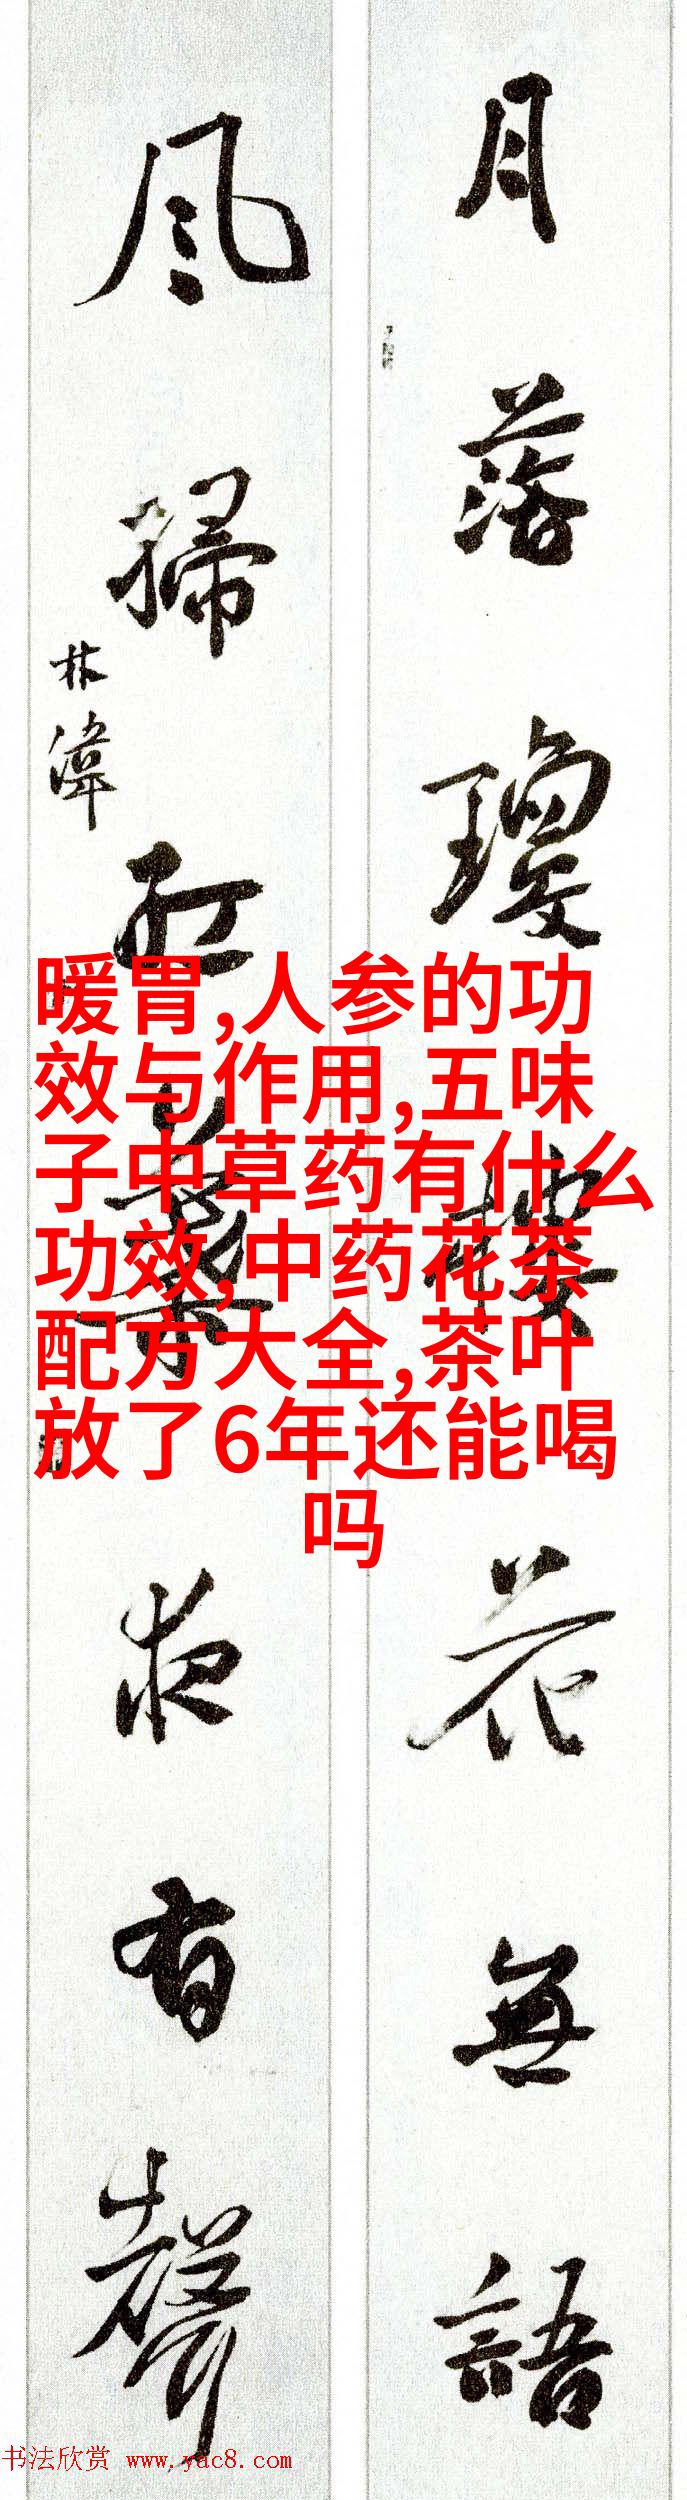 月落瓊樓花無語
风掃紅葉夜有聲
林
暖胃,人参的功
效与作用,五味
子中草药有什么
功效,中药花茶
配方大全,茶叶
放了6年还能喝
吗
书法欣赏 www.yac8.com